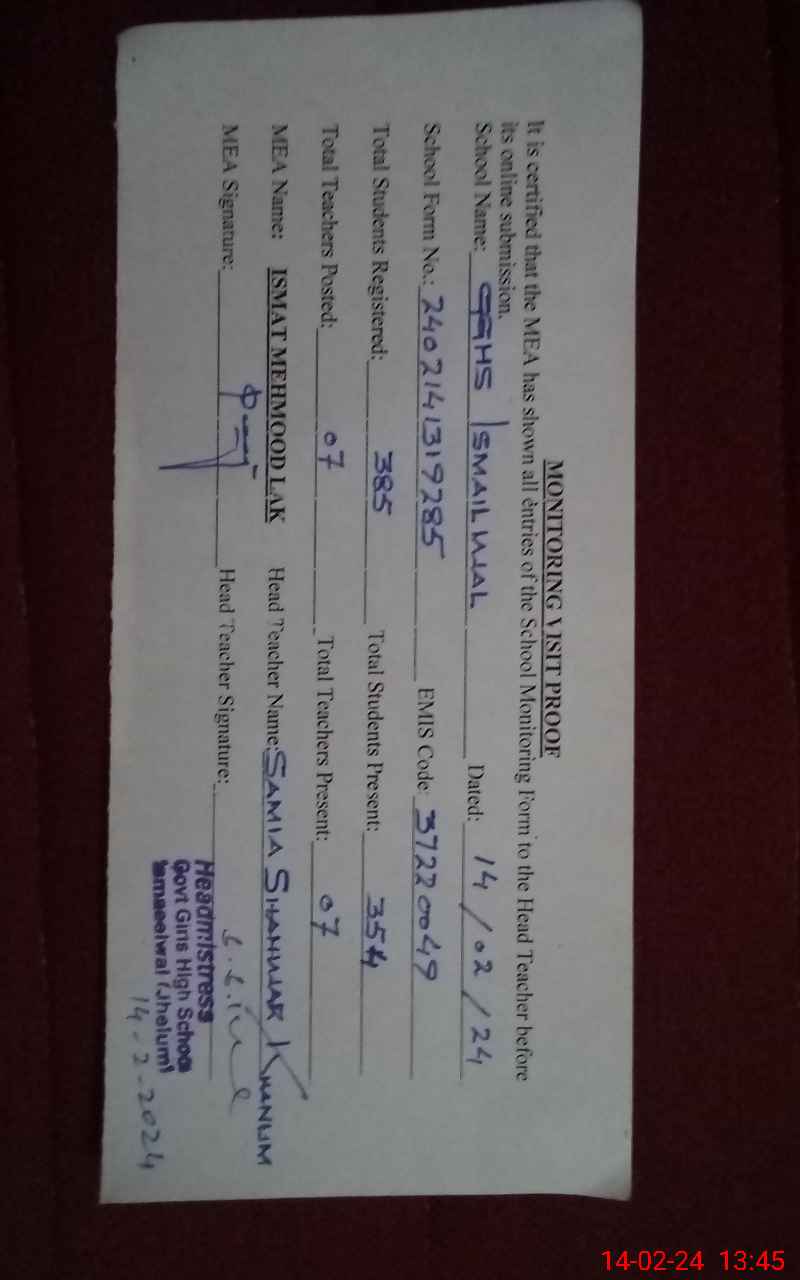 MONITORING VISIT PROOF
It is certified that the MEA has shown all entries of the School Monitoring Form to the Head Teacher before
its online submission.
School Name: GGHS ISMAIL WAL Dated: 14/02/24
School Form No.: 2402141319285 EMIS Code: 37220049
Total Students Registered: 385 Total Students Present: 354
Total Teachers Posted: 07 Total Teachers Present: 07
MEA Name: ISMAT MEHMOOD LAK Head Teacher Name: SAMIA SHAHWAR KHANUM
MEA Signature: Head Teacher Signature:
Headmistress
Govt Girls High School
Ismaeelwal (Jhelum)
14-2-2024
14-02-24 13:45